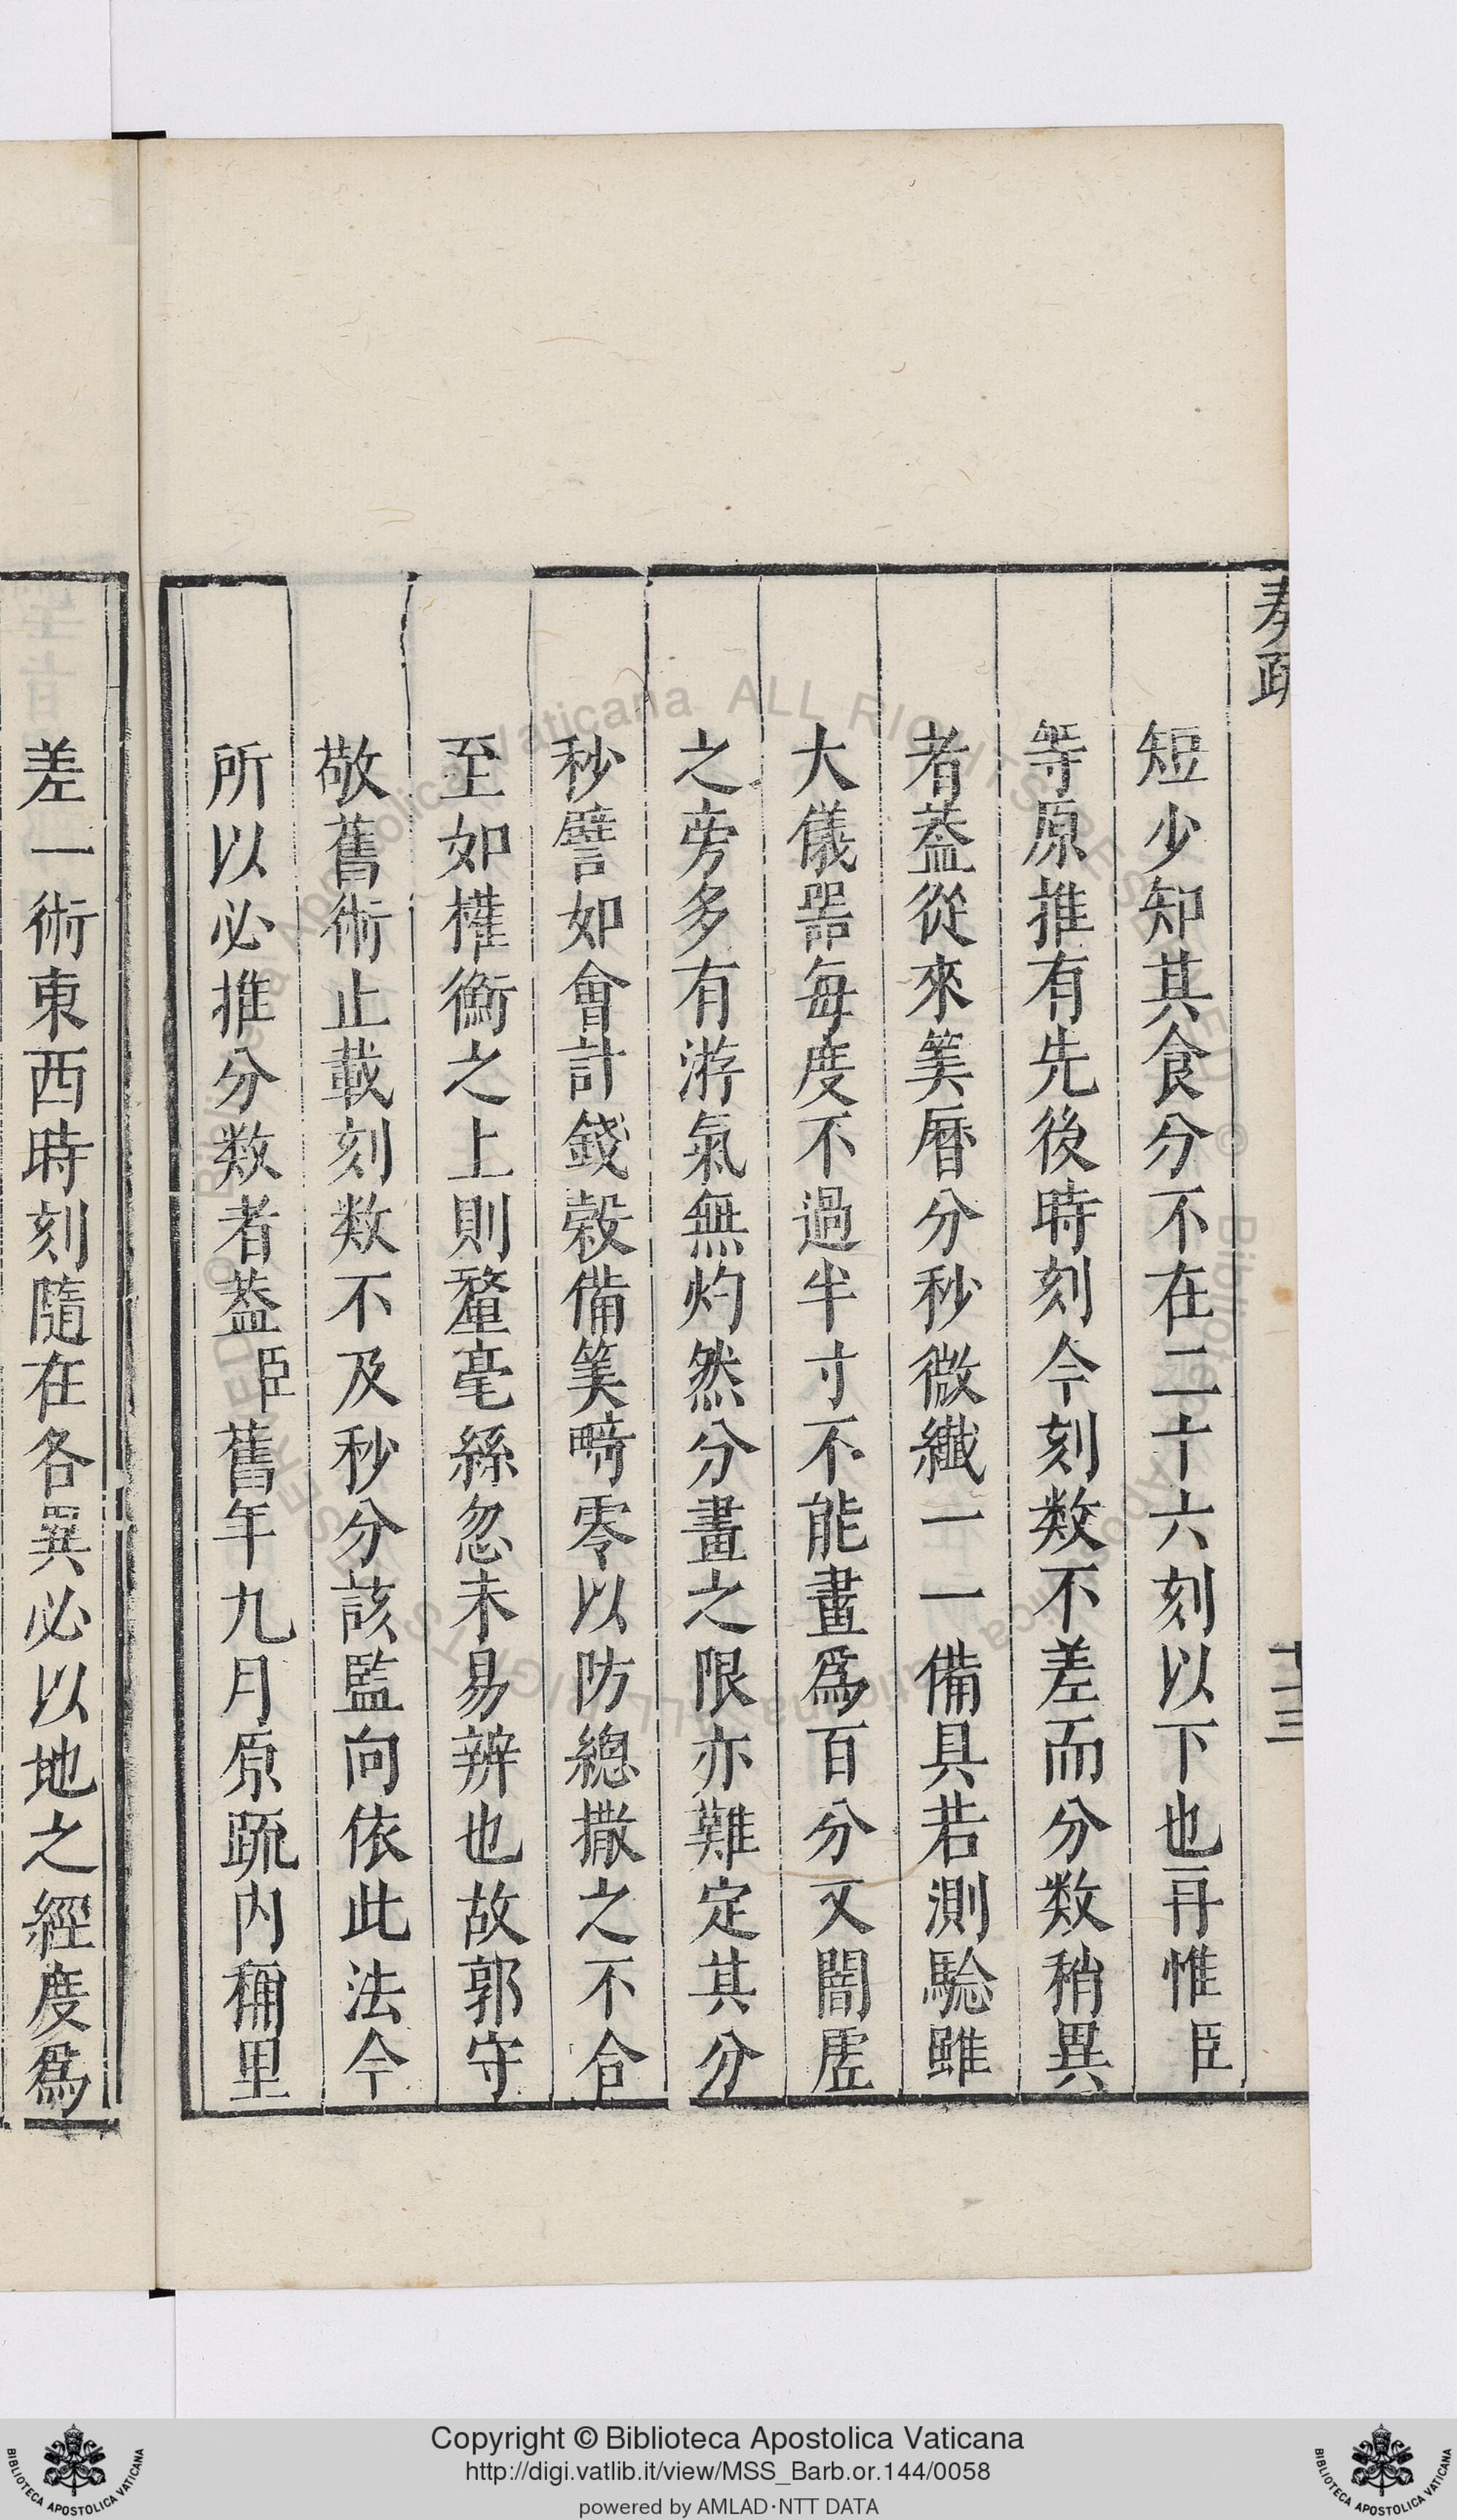 奏疏
十三
短少知其食分不在二十六刻以下也再惟臣
等原推有先後時刻今刻数不差而分数稍異
者葢從來筭曆分秒微纖一一備具若測騐雖
大儀器每度不過半寸不能畫爲百分又闇虛
之旁多有游氣無灼然分畫之限亦難定其分
秒譬如會計錢穀備筭畸零以防總撒之不合
至如權衡之上則釐毫絲忽未易辨也故郭守
敬舊術止載刻数不及秒分該監向依此法今
所以必推分数者葢臣舊年九月原疏内稱里
差一術東西時刻隨在各異必以地之經度爲
Copyright © Biblioteca Apostolica Vaticana
http://digi.vatlib.it/view/MSS_Barb.or.144/0058
powered by AMLAD·NTT DATA